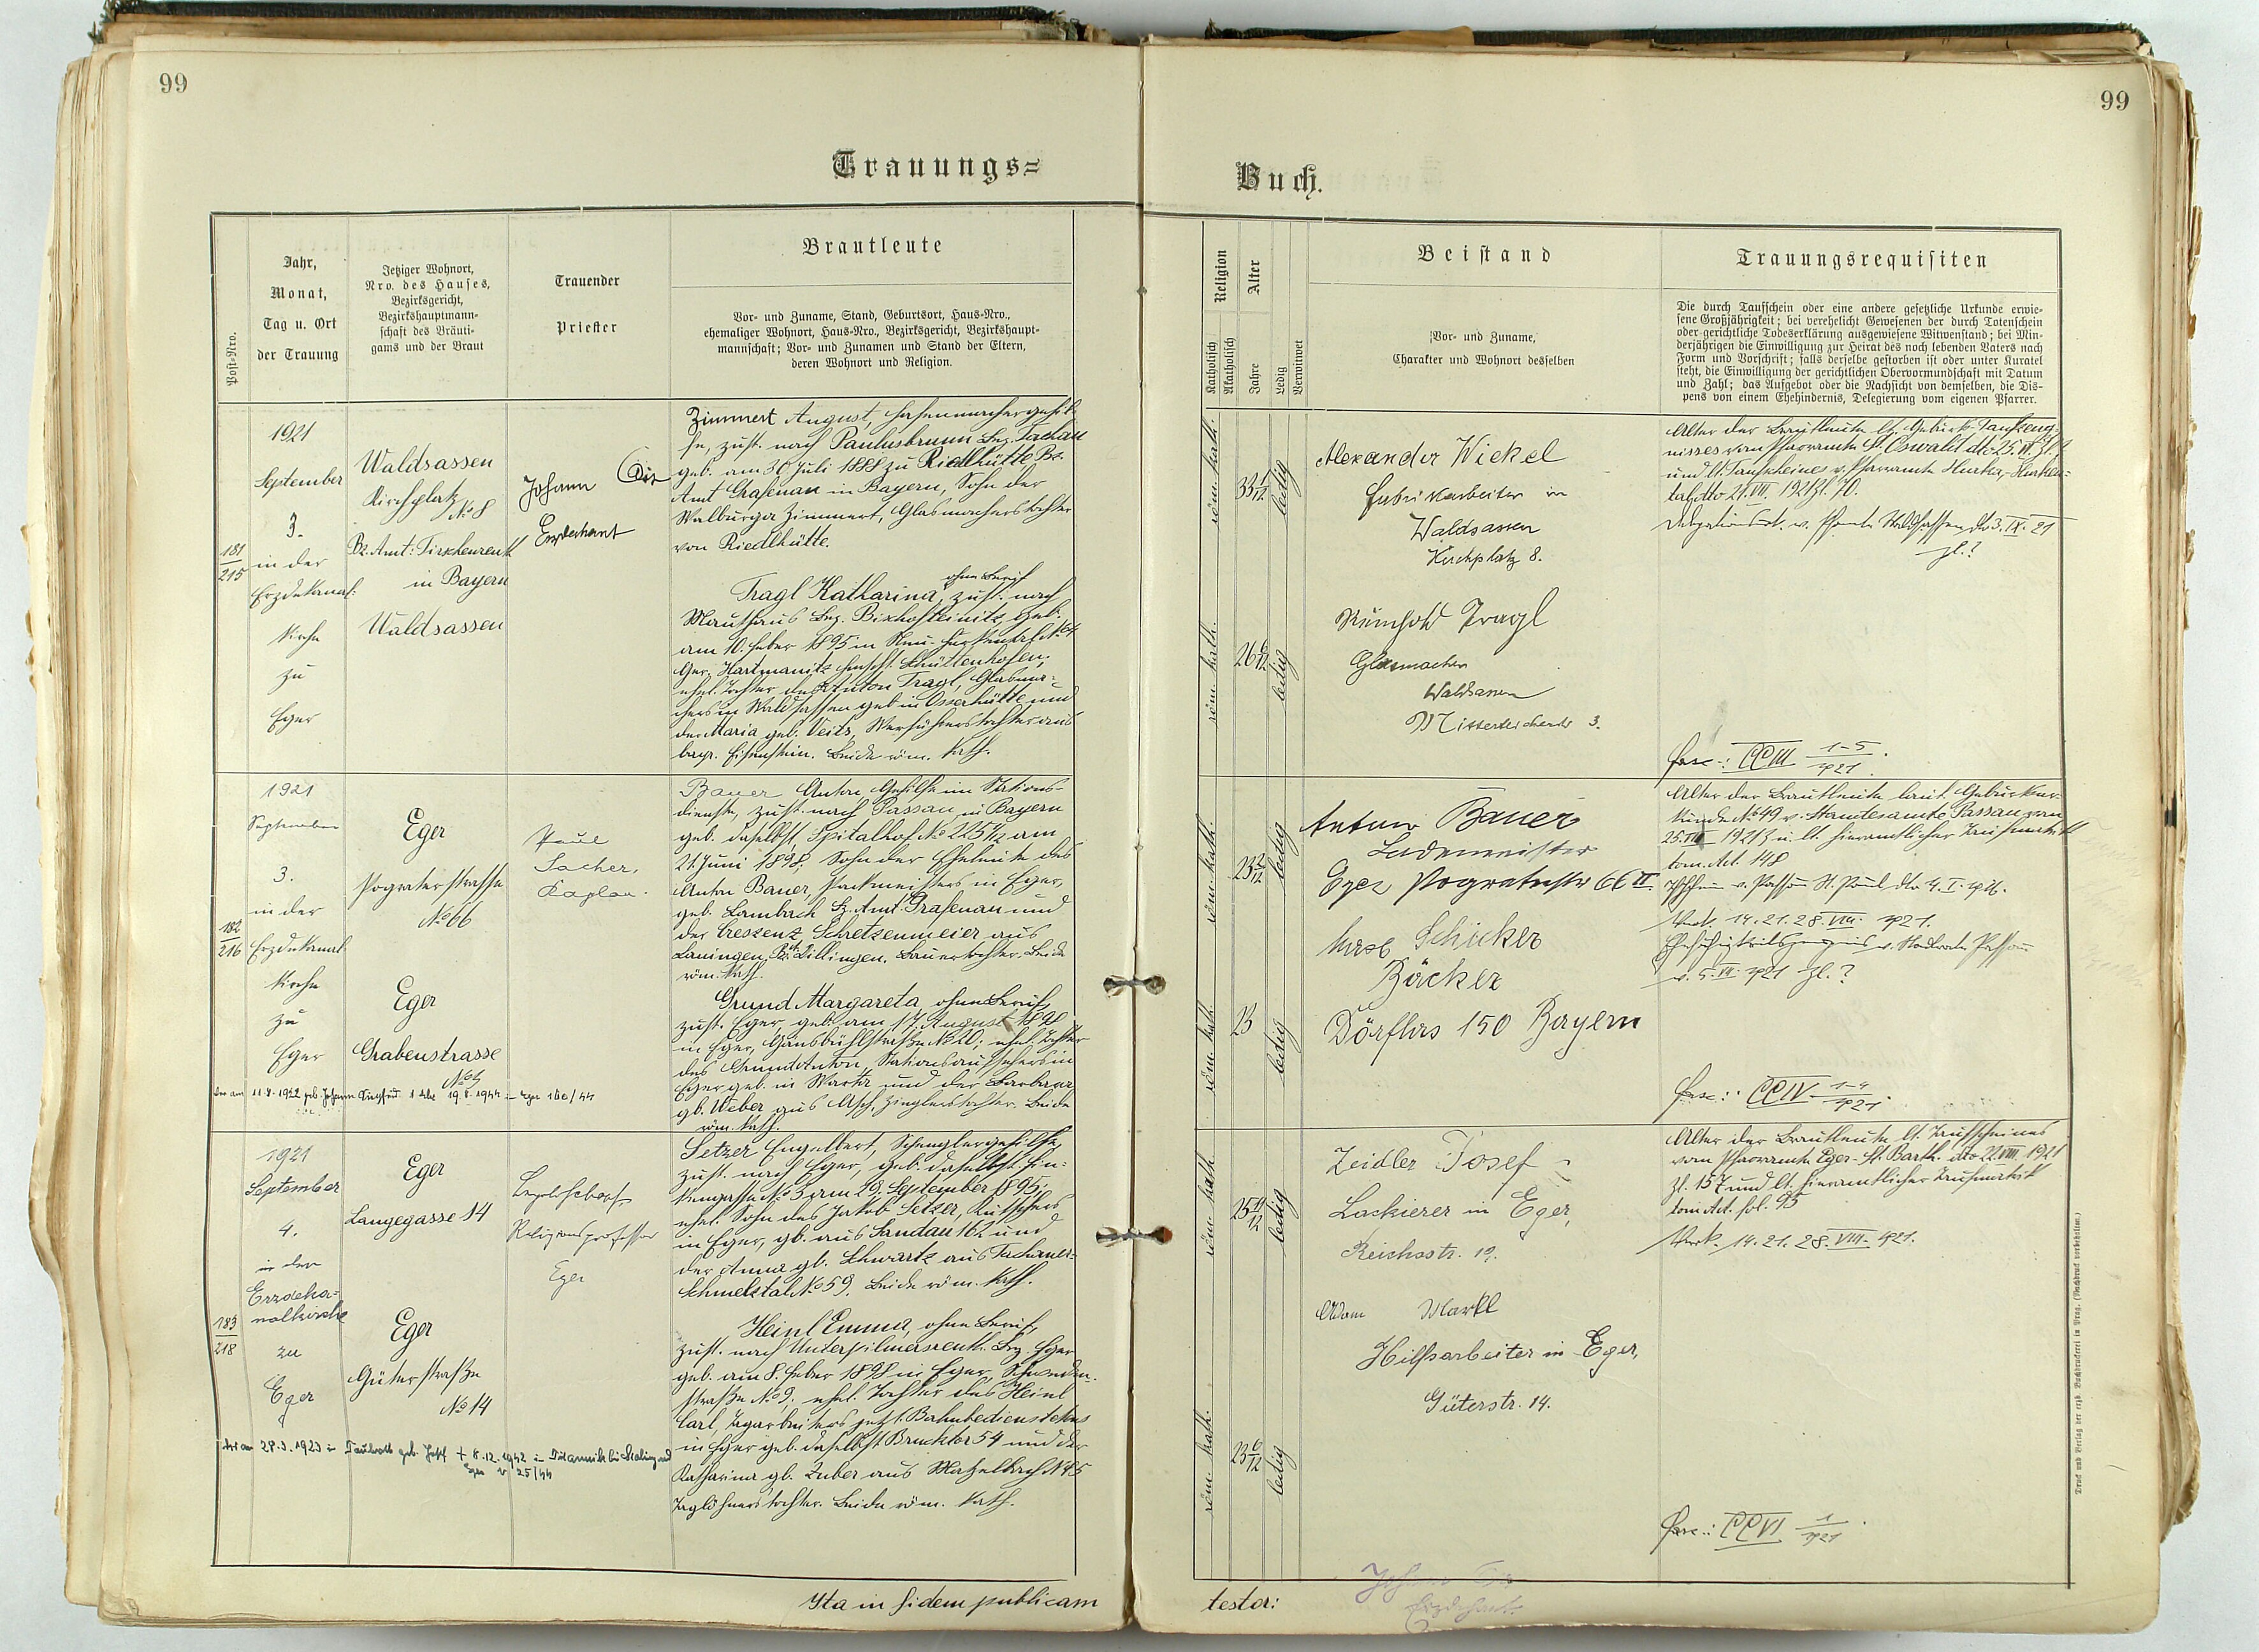 99
99
Trauungs=
Buch.
Post-Nro.
Jahr,
Monat,
Tag u. Ort
der Trauung
Jetziger Wohnort,
Nro. des Hauses,
Bezirksgericht,
Bezirkshauptmann-
schaft des Bräuti-
gams und der Braut
Trauender
Priester
Brautleute
Vor- und Zuname, Stand, Geburtsort, Haus-Nro.,
ehemaliger Wohnort, Haus-Nro., Bezirksgericht, Bezirkshaupt-
mannschaft; Vor- und Zunamen und Stand der Eltern,
deren Wohnort und Religion.
Religion
Katholisch
Akatholisch
Alter
Jahre
Ledig
Verwitwet
Beistand
Vor- und Zuname,
Charakter und Wohnort desselben
Trauungsrequisiten
Die durch Taufschein oder eine andere gesetzliche Urkunde erwie-
sene Großjährigkeit; bei verehelicht Gewesenen der durch Totenschein
oder gerichtliche Todeserklärung ausgewiesene Witwenstand; bei Min-
derjährigen die Einwilligung zur Heirat des noch lebenden Vaters nach
Form und Vorschrift; falls derselbe gestorben ist oder unter Kuratel
steht, die Einwilligung der gerichtlichen Obervormundschaft mit Datum
und Zahl; das Aufgebot oder die Nachsicht von demselben, die Dis-
pens von einem Ehehindernis, Delegierung vom eigenen Pfarrer.
181
215
1921
September
3.
in der
Erzdekanal-
kirche
zu
Eger
Waldsassen
Kirchplatz
No 8
Bz. Amt: Tirschenreuth
in Bayern
Waldsassen
Johann
Erzdechant
Zimmert August, Hafenmachergehil-
fe, zust. nach Paulusbrunn Bez. Tachau
geb. am 30. Juli 1888 zu Riedlhütte Bz.
Amt Grafenau in Bayern, Sohn der
Walburga Zimmert, Glasmacherstochter
von Riedlhütte.
ohne Beruf
Tragl Katharina, zust. nach
Mauthaus Bez. Bischofteinitz, geb.
am 10. Feber 1895 in Neu-Hurkental No 4
Ger. Hartmanitz Schüttenhofen;
ehel. Tochter des Anton Tragl, Glasma-
chers in Waldsassen geb. in Osserhütte und
der Maria geb. Veits, Werkführerstochter aus
bayr. Eisenstein. Beide röm. kath.
röm. kath.
33 1/12
ledig
röm. kath.
26 6/12
ledig
Alexander Wickel
Fabrikarbeiter in
Waldsassen
Kirchplatz 8.
Reinhold Tragl
Glasmacher
Waldsassen
Mitterteicherstr 3.
Alter der Brautleute lt. Geburts-Taufzeug-
nisses vom Pfarramte St. Oswald dto 25.
und lt. Taufscheines v. Pfarramte Hurka, Hurken-
tal dto 21. VII. 1921 Zl. 70.
v. Pfarramte Waldsassen dto 3. IX. 21
Zl.?
Fasc.: CCIII 1-5
1921
182
216
1921
September
3.
in der
Erzdekanal
kirche
zu
Eger
Eger
Pograterstrasse
No 66
Eger
Grabenstrasse
Paul
Sacher,
Kaplan.
Bauer Anton Gehilfe im Stations-
dienste, zust. nach Passau in Bayern
geb. daselbst, Spitalhof No 213½ am
21. Juni 1898, Sohn der Eheleute des
Anton Bauer, Packmeisters in Eger,
geb. Lembach Bz. Amt Grafenau und
der Creszenz Schretzenmeier aus
Lauingen, Bz. Dillingen. Bauerstochter. Beide
röm. kath.
Grund Margareta, ohne Beruf,
zust. Eger, geb. am 17. August 1898
in Eger, Gänsbühlstraße No 20; ehel. Tochter
des Grund Anton, Stationsaufsehers in
Eger geb. in Warta und der Barbara
gb. Weber aus Asch, Zieglerstochter. Beide
röm. kath.
röm. kath.
23 2/12
ledig
röm. kath.
23
ledig
Anton Bauer
Lademeister
Eger Pograterstr 66 II.
Schicker
Bäcker
Dörflas 150 Bayern
Alter der Brautleute laut Geburtsur-
kunde No 49 v. Standesamte Passau vom
25. VIII 1921 u. lt. hieramtlicher Taufmatrik
tom. Act. 148
Verk. 14. 21. 28. VIII. 1921.
Ehefähigkeitszeugnis v. Stadtrate Passau
v. 5. VII. 1921 Zl.?
Fasc.: CCIV 1-4
1921
183
218
1921
September
4.
in der
Erzdeka-
nalkirche
zu
Eger
Eger
Langegasse 14
Eger
Güterstraße
No 14
Religionsprofessor
Eger
Setzer Engelbert, Spenglergehilfe,
zust. nach Eger, geb. daselbst. Fin-
kengasse No 3 am 29. September 1895;
ehel. Sohn des Jakob Setzer, Kutschers
in Eger, gb. aus Sandau 162 und
der Anna gb. Schwartz aus Tachauer-
schmelztal No 59. Beide röm. kath.
Heinl Emma, ohne Beruf,
zust. nach Unterpilmersreuth. Bez. Eger
geb. am 8. Feber 1898 in Eger,
straße No 9; ehel. Tochter des Heinl
Carl, Tagarbeiters jetzt. Bahnbediensteten
in Eger geb. daselbst Brucktor 54 und der
Katharina gb. Zuber aus
Taglöhnerstochter. Beide röm. kath.
28.3.1923
8.12.1942
25/44
röm. kath
25 11/12
ledig
röm. kath.
23 6/12
ledig
Zeidler Josef
Lackierer in Eger,
Reichsstr. 19.
Adam Markl
Hilfsarbeiter in Eger,
Güterstr. 14.
Alter der Brautleute lt. Taufscheines
vom Pfarramte Eger-St. Barth. dto 22. VIII 1921
Zl. 157 und lt. hieramtlicher Taufmatrik
tom Act. fol. 95
Verk. 14. 21. 28. VIII. 1921.
Fasc.: CCVI 1
1921
Ita in fidem publicam
testor:
Johann
Erzdechant.
Druck und Verlag der erzb. Buchdruckerei in Prag. (Nachdruck vorbehalten.)